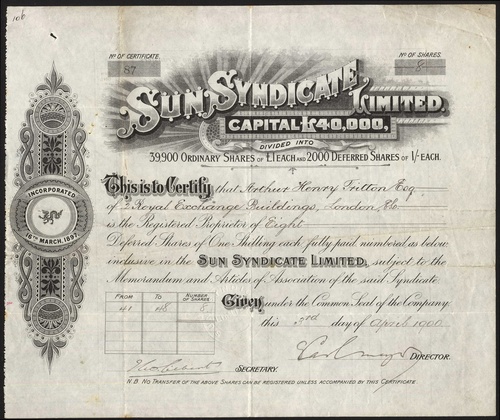 106
No OF CERTIFICATE.
87
No OF SHARES.
8
SUN SYNDICATE LIMITED.
CAPITAL £40,000,
DIVIDED INTO
39,900 ORDINARY SHARES OF £1 EACH AND 2000 DEFERRED SHARES OF 1/- EACH.
This is to Certify that Arthur Henry Tritton Esq
of Royal Exchange Buildings, London, E.C.
is the Registered Proprietor of Eight
Deferred Shares of One Shilling each, fully paid numbered as below
inclusive in the SUN SYNDICATE LIMITED, subject to the
Memorandum and Articles of Association of the said Syndicate.
INCORPORATED
16TH MARCH, 1897.
FROM TO NUMBER OF SHARES
41 48 8
Given under the Common Seal of the Company,
this 3rd day of April 1900
DIRECTOR.
SECRETARY.
N.B. NO TRANSFER OF THE ABOVE SHARES CAN BE REGISTERED UNLESS ACCOMPANIED BY THIS CERTIFICATE.